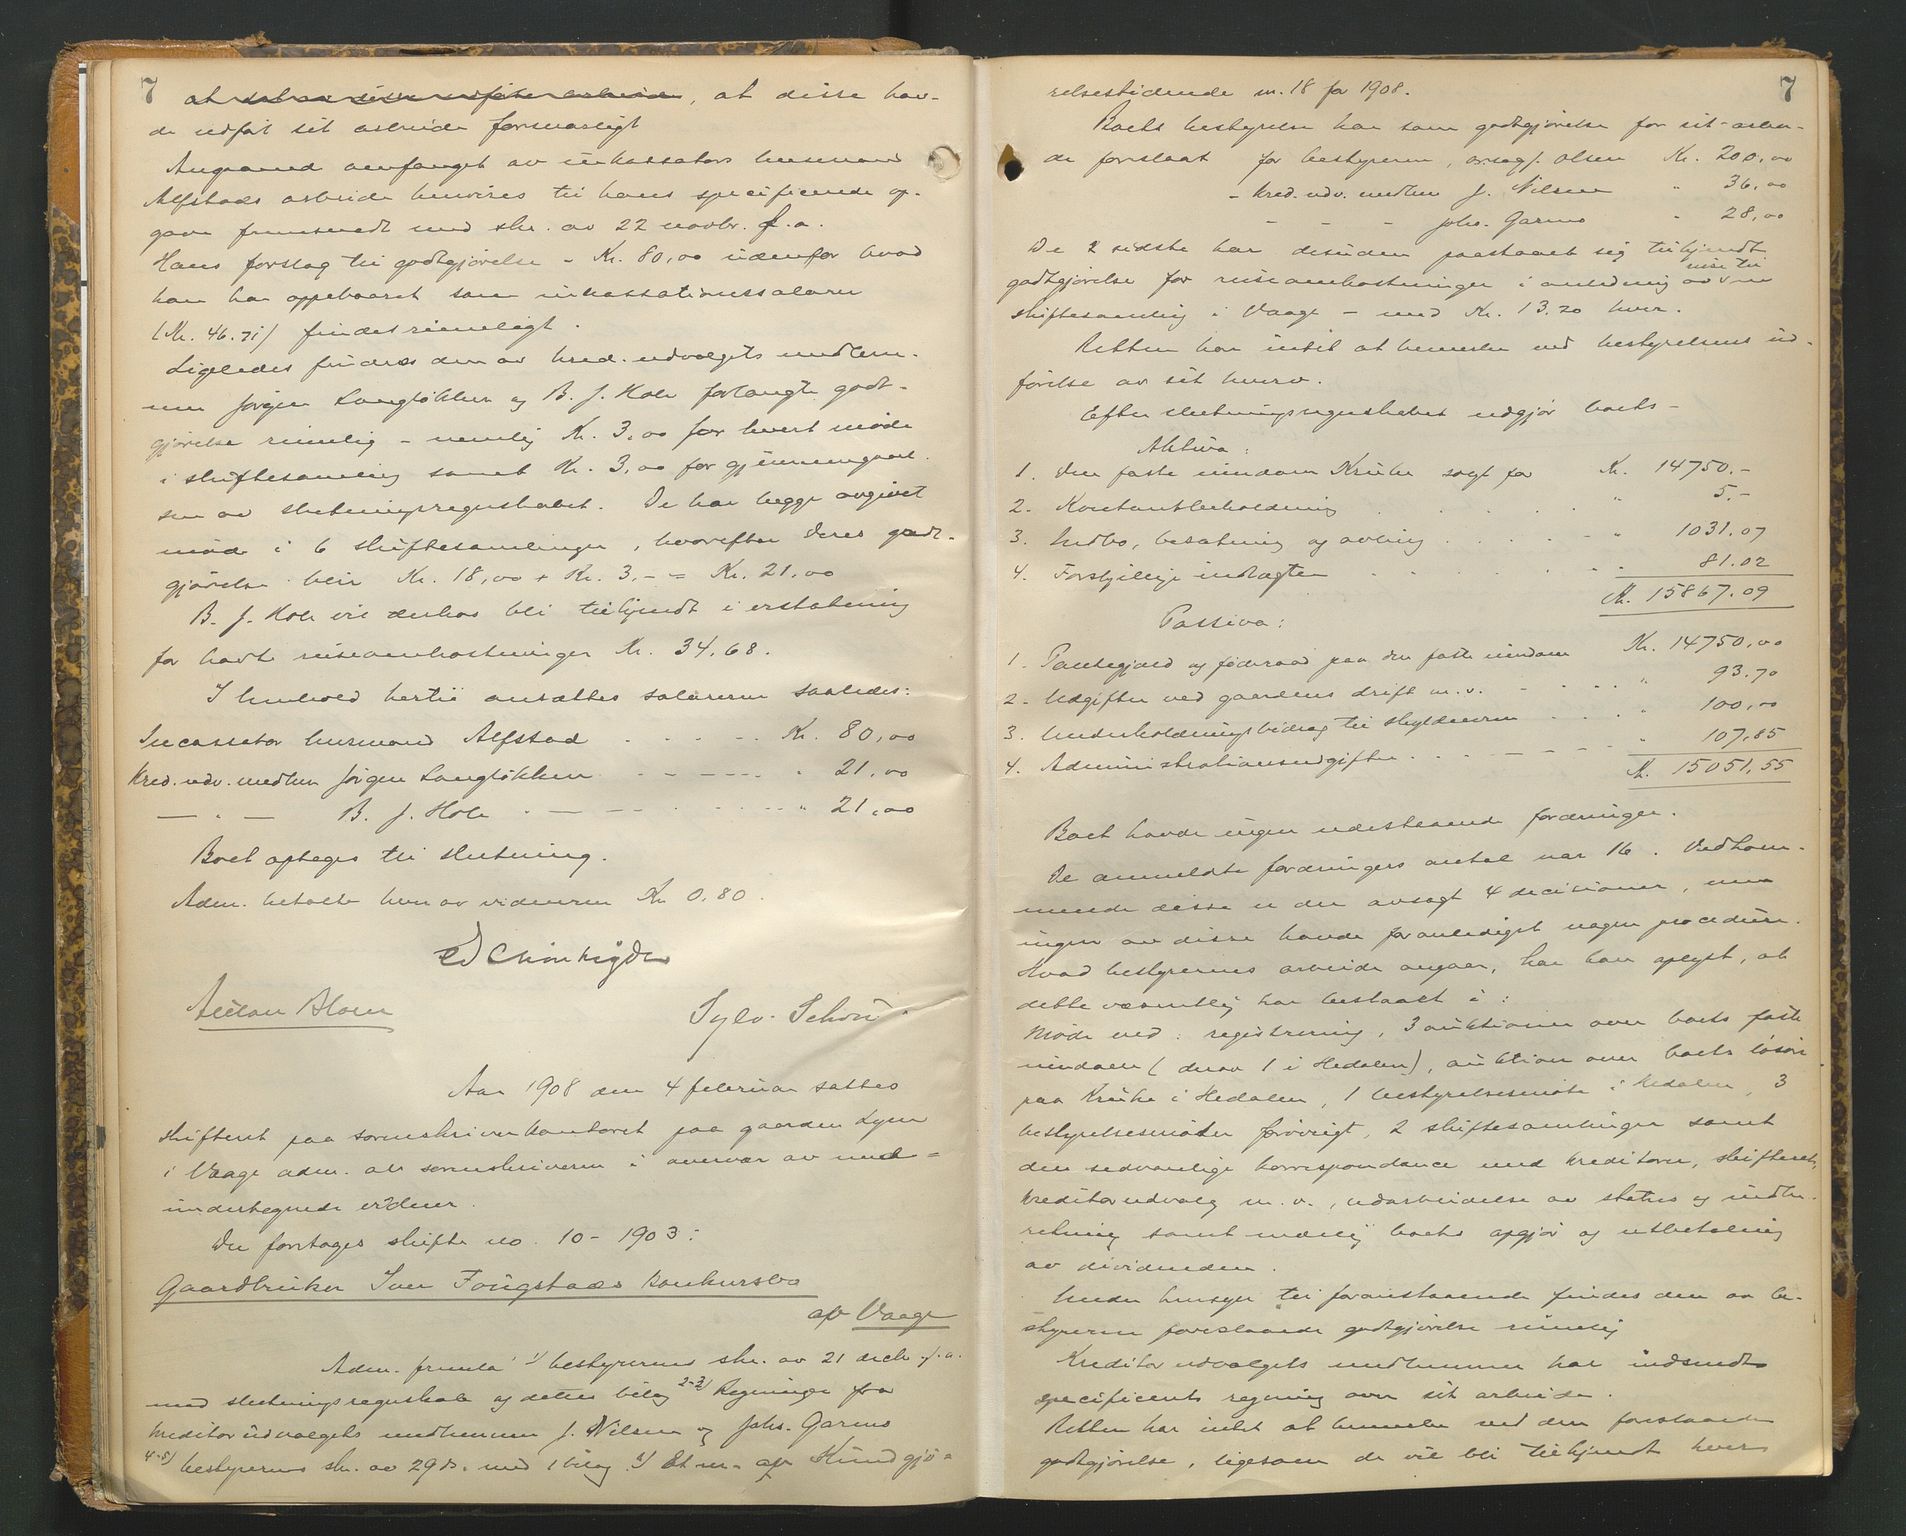 7
at <s>saban disse udførte arbeide</s>, at disse hav-
de udført sit arbeide forsvarligt
Angaaend omfanget av inkassators husmand
Alfstads arbeide henvises til hans specificerede op-
gave fremsendt med skr. av 22 novbr. f.a.
Hans forslag til godtgjørelse – Kr. 80,00 udenfor hvad
han har oppebaaret som inkassationssalær
(Kr. 46.71) findes rimeligt.
Ligeledes findes den av kred.udvalgets medlem-
mer Jørgen Langløkken og B. J. Hole forlangte godt-
gjørelse rimelig – nemlig Kr. 3,00 for hvert møde
i skiftesamling samt Kr. 3,00 for gjennemgaael-
sen av slutningsregnskabet. De har begge avgivet
møde i 6 skiftesamlinger, hvorefter deres godt-
gjørelse blir Kr. 18,00 + Kr. 3,- = Kr. 21,00
B. J. Hole vil derhos bli tilkjendt i erstatning
for havte reiseomkostninger Kr. 34,68.
I henhold hertil ansættes salærerne saaledes:
Incassator husmand Alfstad Kr. 80,00
Kred. udv. medlem Jørgen Langløkken " 21,00
— " — B. J. Hole " 21,00
Boet optages til slutning.
Adm. betalte hver av vidnerne Kr 0,80.
Sylv. Schou
Aar 1908 den 4 februar sattes
skifteret paa sorenskriverkontoret paa gaarden
i Vaage adm. av sorenskriveren i overvær av med-
undertegnede vidner.
Der foretoges skifte no. 10 - 1903:
Gaardbruker Iver Fougstads konkursbo
af Vaage
Adm. fremla 1) bestyrerens skr. av 21 decb. f.a.
med slutningsregnskab og dettes bilag 2-3) Regninger fra
kreditorudvalgets medlemmer J. Nilsen og Johs. Garmo
4-5) bestyrerens skr. av 29 ds. med 1 bilag Et nr. af Kundgjø-
7
relsestidende nr. 18 for 1908.
Boets bestyrelse har som godtgjørelse for sit arbei-
de foreslaat for bestyreren, orsagf. Olsen Kr. 200,00
- kred. udv. medlem J. Nilsen " 36,00
- - - Johs. Garmo " 28,00
De 2 sidste har desuden paastaaet sig tilkjendt
godtgjørelse for reiseomkostninger i anledning av reise til
skiftesamling i Vaage – med Kr. 13.20 hver.
Retten har intet at bemerke ved bestyrelsens ud-
førelse av sit hverv.
Efter slutningsregnskabet udgjør boets –
Aktiva:
1. Den faste eiendom Kruke solgt for Kr. 14750.-
2. Kontantbeholdning " 5.-
3. Indbo, besætning og avling " 1031.07
4. Forskjellige indtægter " 81.02
Kr. 15867.09
Passiva:
1. Pantegjæld og føderaad paa den faste eiendom Kr. 14750,00
2. Udgifter ved gaardens drift m.v. " 93.70
3. Underholdningsbidrag til skyldneren " 100,00
4. Administrationsudgifter " 107,85
Kr. 15051,55
Boet havde ingen udestaaende fordringer.
De anmeldte fordringers antal var 16. Vedkom-
mende disse er der avsagt 4 decisioner, men
ingen av disse havde foranlediget nogen procedure.
Hvad bestyrerens arbeide angaar, har han oplyst, at
dette væsentlig har bestaaet i:
Møde ved: registrering, 3 auktioner over boets faste
eiendom (derav 1 i Hedalen), auktion over boets løsøre
paa Kruke i Hedalen, 1 bestyrelsesmøte i Hedalen, 3
bestyrelsesmøder forøvrigt, 2 skiftesamlinger samt
den sedvanlige korrespondance med kreditorer, skifteret,
kreditorudvalg m.v., udarbeidelse av status og indbe-
retning samt endelig boets opgjør og utbetaling
av dividenden.
Under hensyn til foranstaaende findes den av be-
styreren foreslaaede godtgjørelse rimelig
Kreditorudvalgets medlemmer har indsendt
specificerts regning over sit arbeide.
Retten har intet at bemerke ved den foreslaaede
godtgjørelse, ligesom de vil bli tilkjendt hver